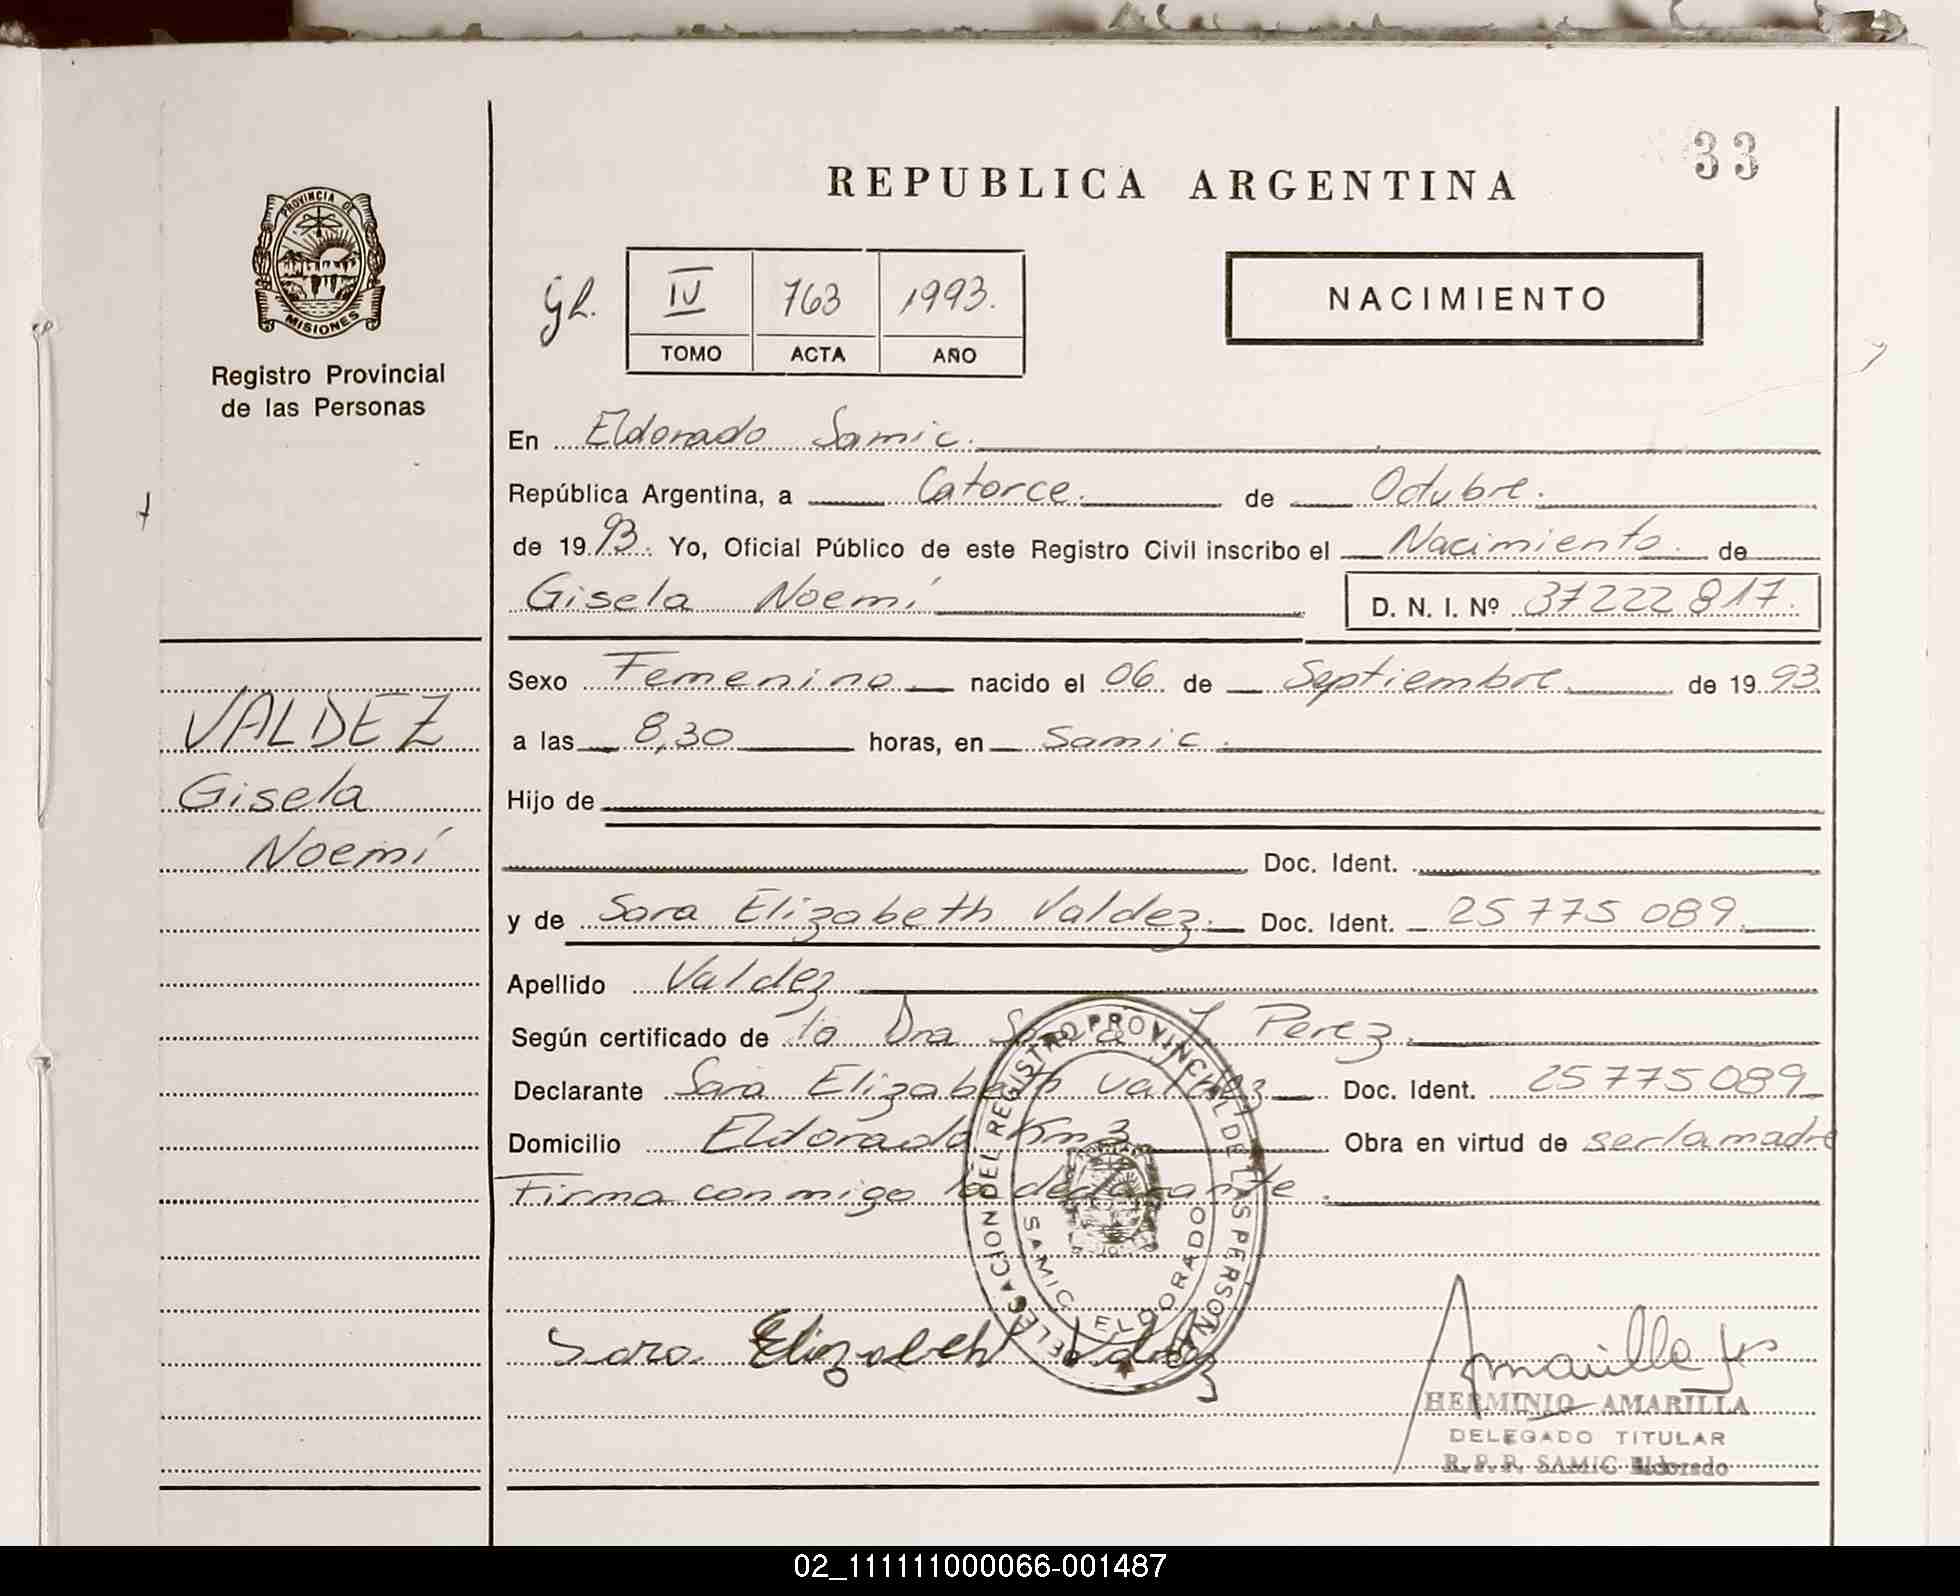 33
REPUBLICA ARGENTINA
PROVINCIA DE
MISIONES
Registro Provincial
de las Personas
gh. IV 763 1993.
TOMO ACTA AÑO
NACIMIENTO
En Eldorado Samic.
República Argentina, a Catorce. de Octubre.
de 1993. Yo, Oficial Público de este Registro Civil inscribo el Nacimiento de
Gisela Noemí D. N. I. Nº 37222817.
Sexo Femenino nacido el 06 de Septiembre de 1993.
a las 8,30 horas, en Samic.
Hijo de
Doc. Ident.
y de Sara Elizabeth Valdez. Doc. Ident. 25775089.
Apellido Valdez
Según certificado de la Dra Sara Y. Perez.
Declarante Sara Elizabeth Valdez Doc. Ident. 25775089
Domicilio Eldorado Km 3 Obra en virtud de ser la madre
Firma conmigo la declarante.
VALDEZ
Gisela
Noemí
DELEGACION DEL REGISTRO PROVINCIAL DE LAS PERSONAS
SAMIC ELDORADO
Sara Elizabeth Valdez
Amarilla
HERMINIO AMARILLA
DELEGADO TITULAR
R.P.P. SAMIC Eldorado
02_111111000066-001487